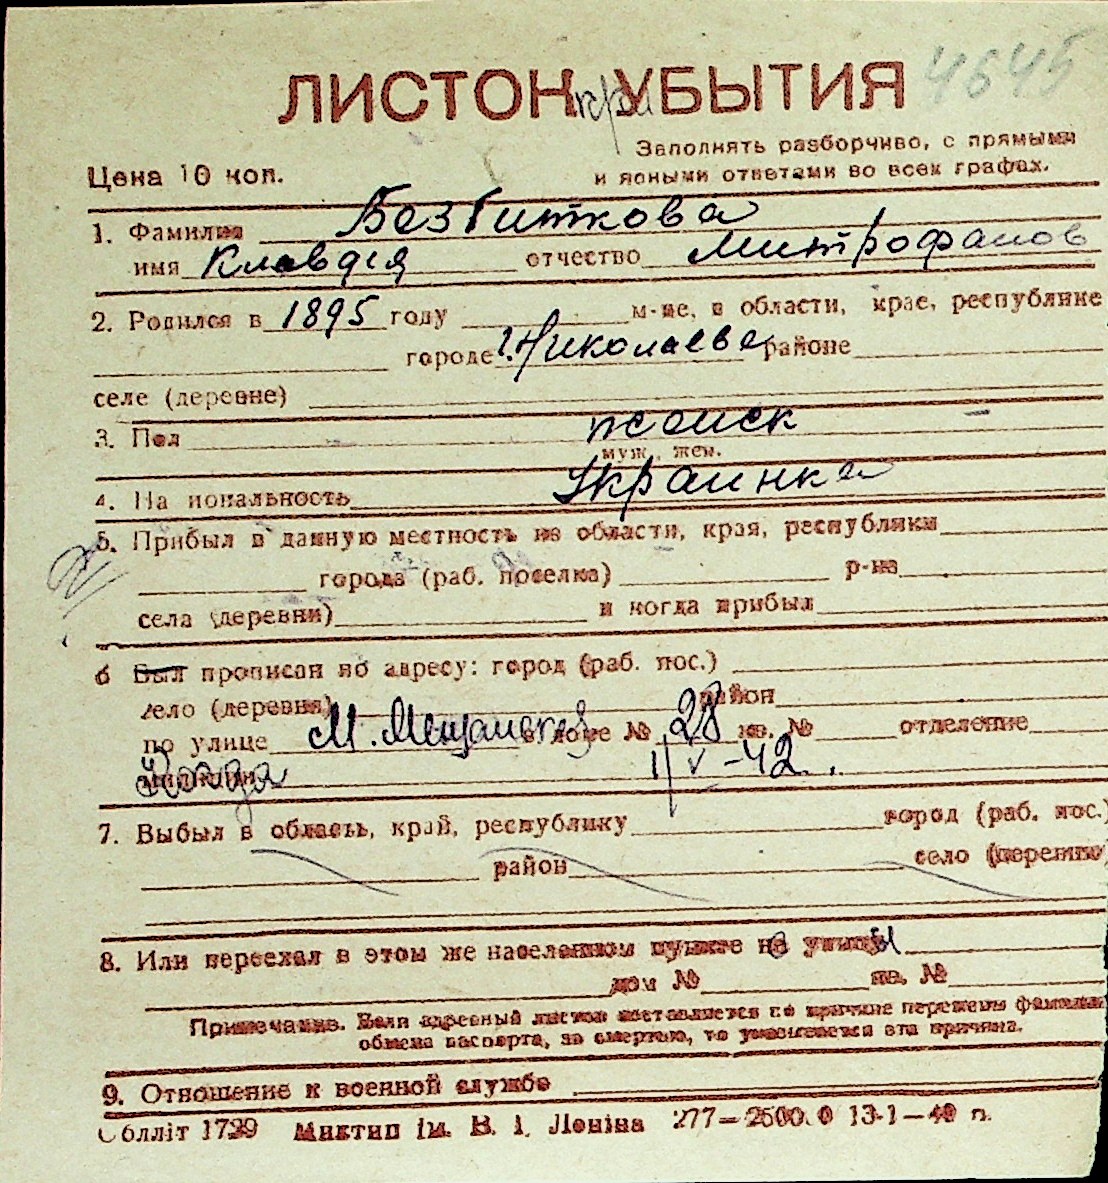 4645
ЛИСТОК УБЫТИЯ
при
Заполнять разборчиво, с прямыми
Цена 10 коп.
и ясными ответами во всех графах.
1. Фамилия Безбиткова
имя Клавдія отчество Митрофанов
2. Родился в 1895 году м-це, в области, крае, республике
городе г. Николаеве районе
селе (деревне)
3. Пол женск
муж., жен.
4. На иональность Украинка
5. Прибыл в данную местность из области, края, республики
города (раб. поселка) р-на
села (деревни) и когда прибыл
6 Был прописан по адресу: город (раб. пос.)
село (деревня) район
по улице М. Мещанской в доме № 28 кв. № отделение
милиции 1/V-42.
7. Выбыл в область, край, республику город (раб. пос.)
район село (деревню)
8. Или переехал в этом же населенном пункте на улицы
дом № кв. №
Примечание. Если адресный листок составляется по причине перемены фамилии
обмена паспорта, за смертью, то указывается эта причина.
9. Отношение к военной службе
Облліт 1729 Миктип ім. В. І. Леніна 277—2500.0 13-1—40 п.